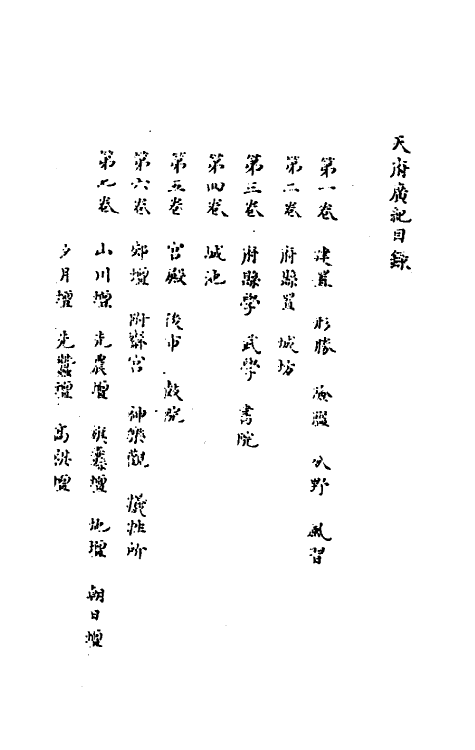 天府廣記目錄
第一卷 建置 形勝 險隘 分野 風習
第二卷 府縣置 城坊
第三卷 府縣學 武學 書院
第四卷 城池
第五卷 宮殿 後市 戲院
第六卷 郊壇 附齋宮 神樂觀 犧牲所
第七卷 山川壇 先農壇 旗纛壇 地壇 朝日壇
夕月壇 先蠶壇 高禖壇